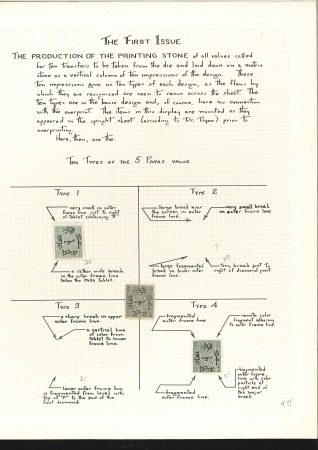 The First Issue
The production of the printing stone of all values called
for ten transfers to be taken from the die and laid down on a matrix
stone as a vertical column of ten impressions of the design. These
ten impressions give us ten types of each design, as the flaws by
which they are recognised are seen to never across the sheet. The
ten types are in the basic design and, of course, have no connection
with the overprint. The items in this display are mounted as they
appeared in the upright sheet (according to Dr. Byam) prior to
overprinting.
Here, then, are the
Ten Types of the 5 Paras value
Type 1
very small in outer
frame line just to right
of tablet containing
a rather wide breach
in the outer frame line
below the PARA tablet.
Type 2
large break near
the corner, in outer
frame line.
very small break
in outer frame line
large fragmented
break in lower outer
frame line
tiny break just to
right of diamond point
Type 3
a sharp break in upper
outer frame line.
a vertical line
of color from
tablet to lower
frame line.
lower outer frame line
is fragmented from level with
top of "P" to the end of the
first diamond.
Type 4
fragmented
outer frame line
minute color
fragment adhering
to outer frame line
fragmented
outer frame line.
fragmented
outer frame
line with color
particle at
right end
of the major
break